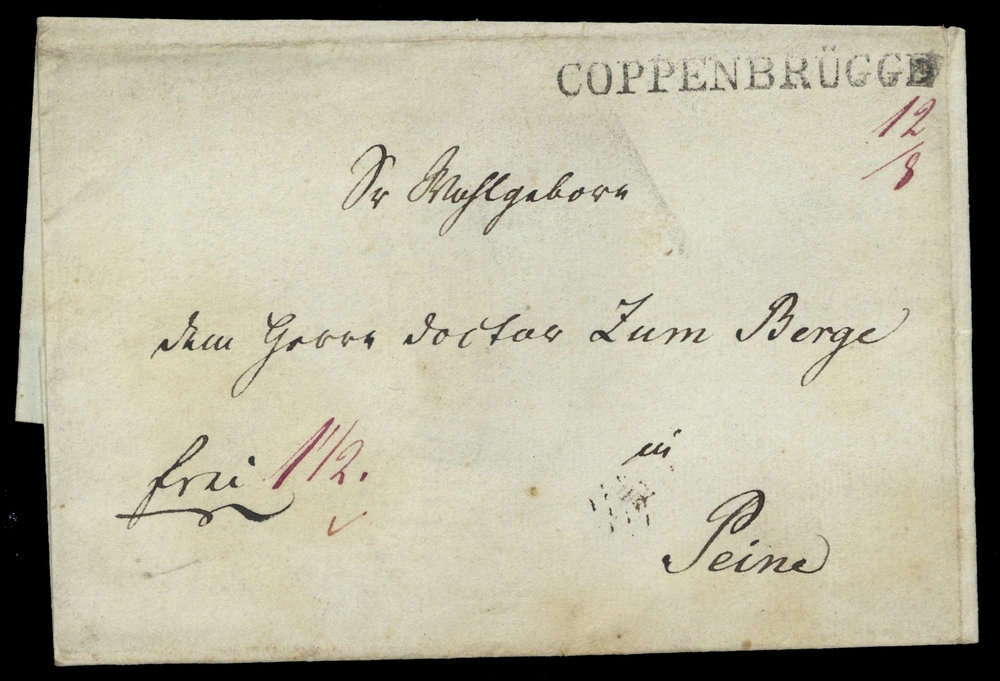 COPPENBRÜGGE
12/8
Sr Wohlgeborn
dem Herrn Doctor Zum Berge
frei 1 1/2.
in
Peine